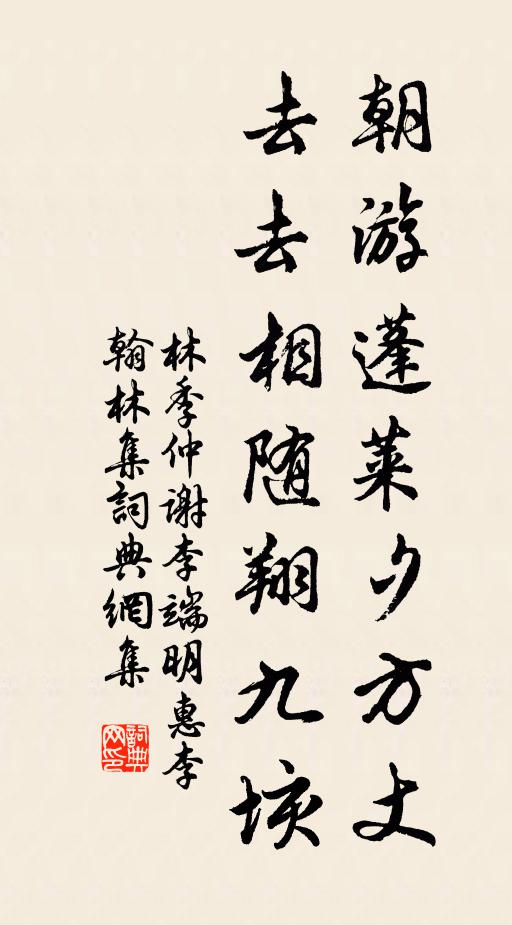 朝游蓬萊夕方丈
去去相随翔九垓
林季仲謝李端明惠李
翰林集詞典網集
詞典网印